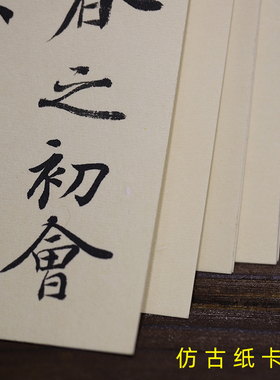 春之初會
仿古纸卡